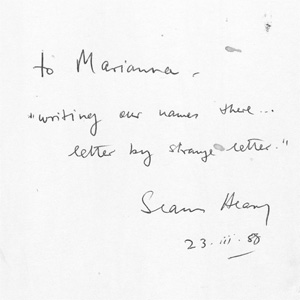 to Marianna,
"writing our names there...
letter by strange letter."
Seamus Heaney
23.iii.88